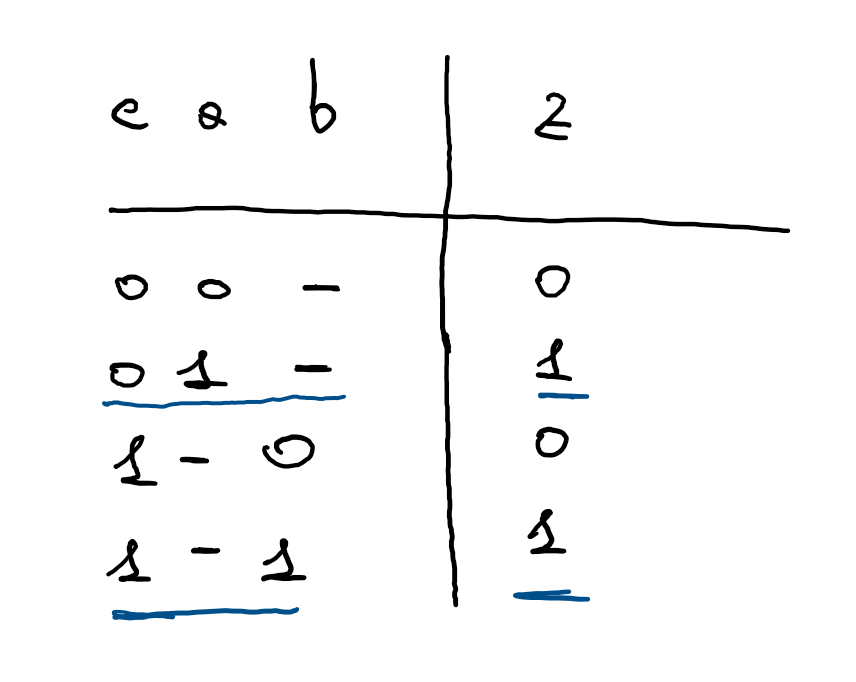 c a b z
0 0 - 0
0 1 - 1
1 - 0 0
1 - 1 1